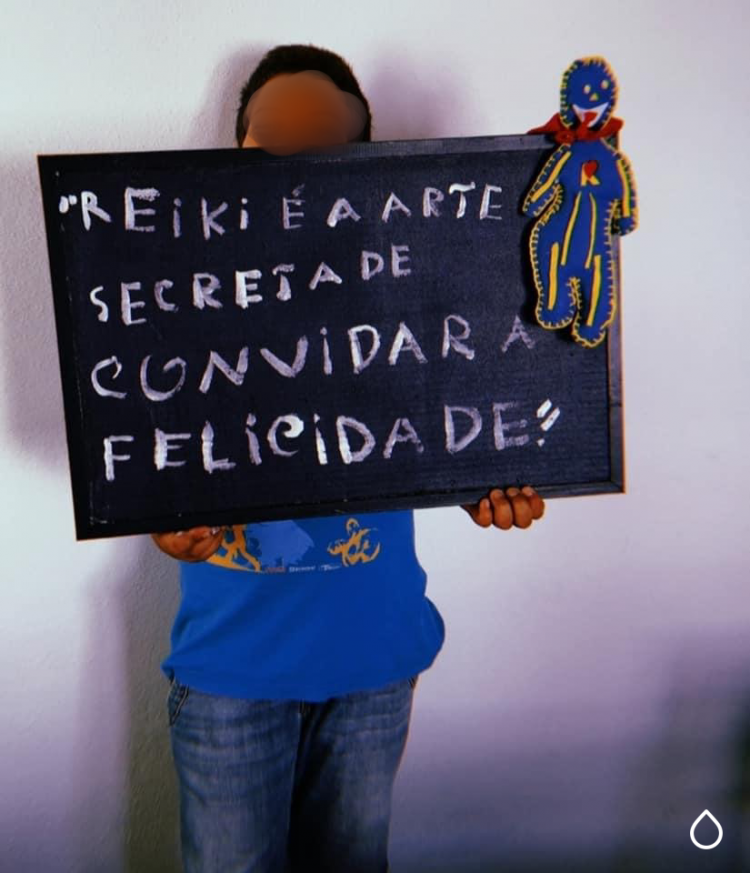 "REiKi É A ARTE
SECRETA DE
CONViDAR A
FELiCiDADE."
R